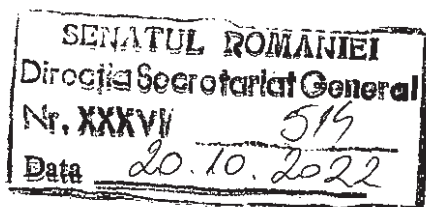 SENATUL ROMÂNIEI
Direcția Secretariat General
Nr. XXXVII 514
Data 20.10.2022